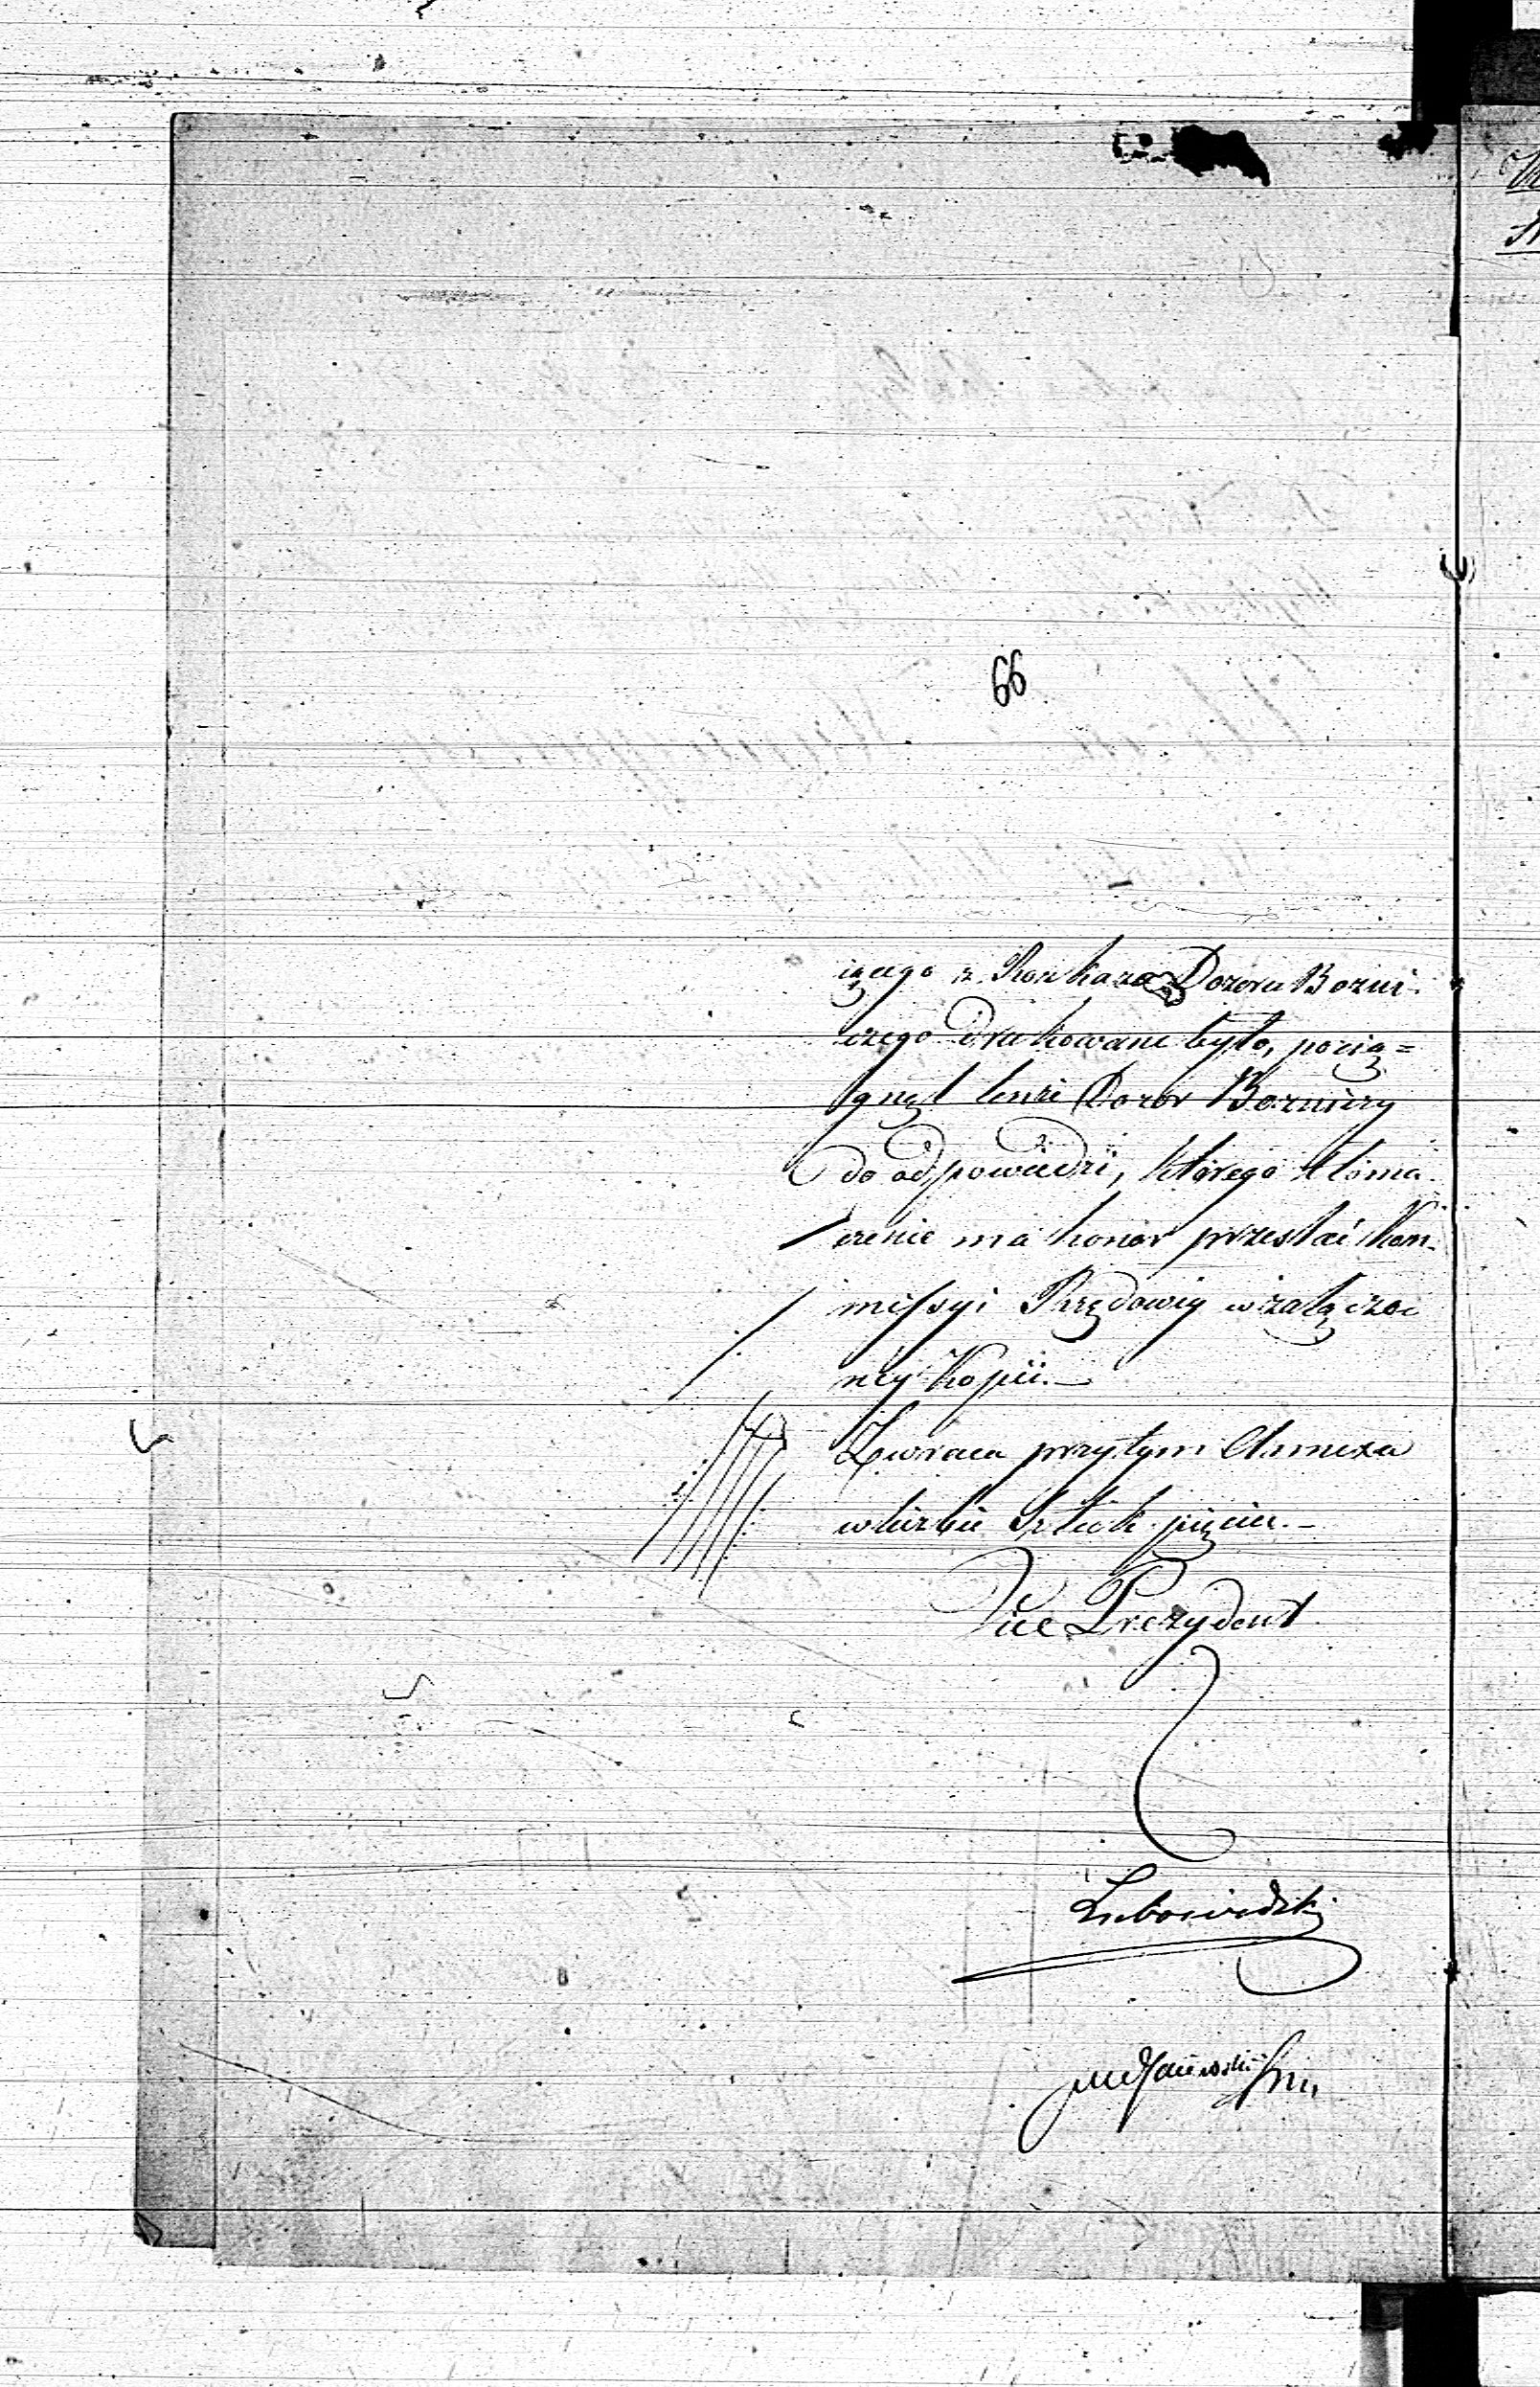 66
iącego z Rozkazu Dozoru Bozni-
czego drukowane było, pocią=
gnął tenże Dozor Bozniczy
do odpowiedzi, którego tłóma-
czenie ma honor przesłać Kom-
missyi Rządowéy w załączo
néy Kopii.—
Zwraca przytym Annexa
w liczbie Sztuk pięciu.—
Vice Prezydent
Lubowidzki